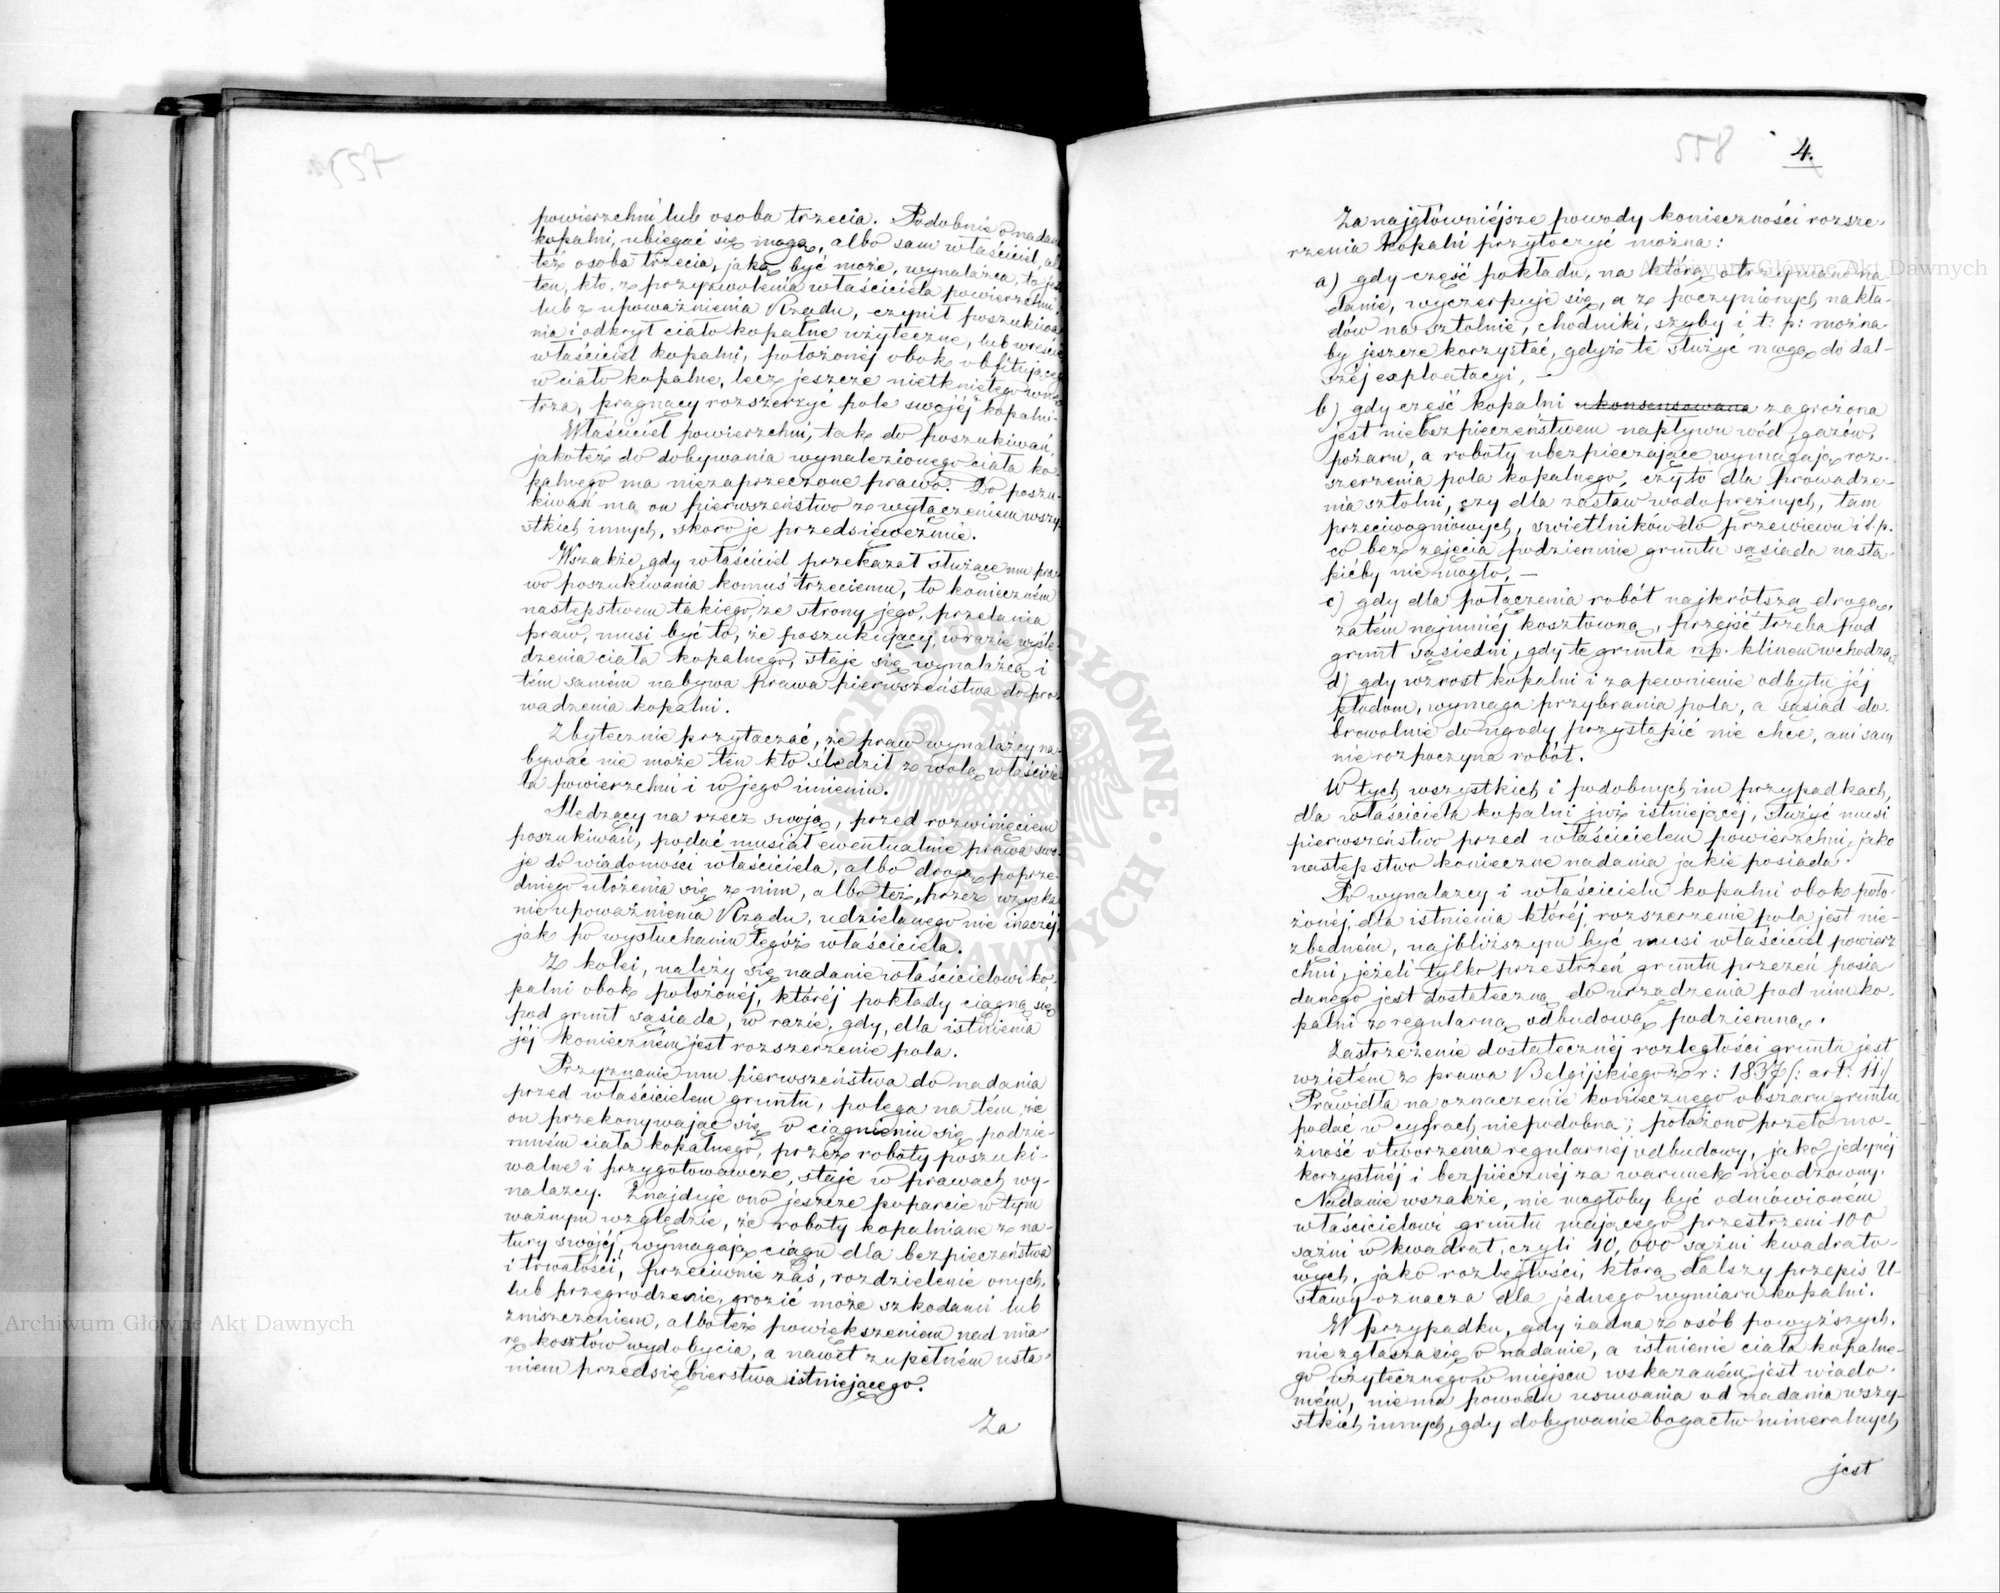 557
powierzchni lub osoba trzecia. Podobnie o nadan
kopalni, ubiegać się mogą, albo sam właściciel, al
też osoba trzecia, jaką być może, wynalazca, to jes
ten, kto, z przyzwolenia właściciela powierzchni
lub z upoważnienia Rządu, czynił poszukiwa
nia i odkrył ciało kopalne użyteczne, lub wreście
właściciel kopalni, położonéj obok obfitującego
w ciało kopalne, lecz jeszcze nietkniętego wnę
trza, pragnący rozszerzyć pole swojéj kopalni.
Właściciel powierzchni, tak do poszukiwań,
jakoteż do dobywania wynalezionego ciała ko
palnego ma niezaprzeczone prawo. Do poszu
kiwań ma on pierwszeństwo z wyłączeniem wszy
stkich innych, skoro je przedsięweźmie.
Wszakże, gdy właściciel przekazał służące mu pra
wo poszukiwania komuś trzeciemu, to konieczném
następstwem takiego, ze strony jego, przelania
praw, musi być to, że poszukujący, w razie wyśle
dzenia ciała kopalnego, staje się wynalazcą i
tém samém nabywa prawa pierwszeństwa do pro
wadzenia kopalni.
Zbytecznie przytaczać, że praw wynalazcy na
bywać nie może ten kto śledził z wolą właścicie
la powierzchni i w jego imieniu.
Śledzący na rzecz swoją, przed rozwinięciem
poszukiwań, podać musiał ewentualnie prawa swo
je do wiadomości właściciela, albo drogą poprze
dniego ułożenia się z nim, albo też, przez uzyska
nie upoważnienia Rządu, udzielanego nie inaczéj,
jak po wysłuchaniu tegóż właściciela.
Z kolei, należy się nadanie właścicielowi ko-
palni obok położonéj, któréj pokłady ciągną się
pod grunt sąsiada, w razie, gdy, dla istnienia
jéj konieczném jest rozszerzenie pola.
Przyznanie mu pierwszeństwa do nadania
przed właścicielem gruntu, polega na tém, że
on przekonywając się o ciągnieniu się podzie-
mném ciała kopalnego, przez roboty poszuki-
walne i przygotowawcze, staje w prawach wy-
nalazcy. Znajduje ono jeszcze poparcie w tym
ważnym względzie, że roboty kopalniane z na-
tury swojéj, wymagają ciągu dla bezpieczeństwa
i trwałości, przeciwnie zaś, rozdzielenie onych,
lub przegrodzenie, grozić może szkodami lub
zniszczeniem, albo też powiększeniem nad mia
rę kosztów wydobycia, a nawet zupełném usta-
niem przedsiębierstwa istniejącego.
Za
558
4.
Za najgłówniéjsze powody konieczności rozsze-
rzenia kopalń przytoczyć można:
a) gdy część pokładu, na którą otrzymano na
danie, wyczerpuje się, a z poczynionych nakła-
dów na sztolnie, chodniki, szyby i t: p: można
by jeszcze korzystać, gdyż te służyć mogą do dal-
széj exploatacyi, —
b) gdy część kopalni ukonsensowana zagrożona
jest niebezpieczeństwem napływu wód, gazów,
pożaru, a roboty ubezpieczające wymagają roz-
szerzenia pola kopalnego, czy to dla prowadze-
nia sztolni, czy dla zastaw wodoprężnych, tam
przeciwogniowych, swietlników do przewiewu i t. p.
co bez zajęcia podziemnie gruntu sąsiada nastą-
pićby nie mogło, —
c) gdy dla połączenia robót najkrótszą drogą,
zatém najmniéj kosztówną, przejść trzeba pod
grunt sąsiedni, gdy te grunta np. klinem wchodzą
d) gdy wzrost kopalni i zapewnienie odbytu jéj
płodom, wymaga przybrania pola, a sąsiad do-
browolnie do ugody przystąpić nie chce, ani sam
nie rozpoczyna robót.
W tych wszystkich i podobnych im przypadkach,
dla właściciela kopalni już istniejącéj, służyć musi
pierwszeństwo przed właścicielem powierzchni, jako
następstwo konieczne nadania jakie posiada.
Po wynalazcy i właścicielu kopalni obok poło-
żonéj, dla istnienia któréj, rozszerzenie pola jest nie-
zbędném, najbliższym być musi właściciel powierz
chni, jeżeli tylko przestrzeń gruntu przezeń posia
danego jest dostateczną do urządzenia pod nim ko-
palni z regularną odbudową podziemną.
Zastrzeżenie dostatecznéj rozległości gruntu jest
wziętém z prawa Belgijskiego z r: 1837 (: art: 11:)
Prawidła na oznaczenie koniecznego obszaru gruntu
podać w cyfrach niepodobna; położono przeto mo-
żność utworzenia regularnéj odbudowy, jako jedynéj
korzystnéj i bezpiecznéj za warunek nieodzowny.
Nadanie wszakże, nie mogłoby być odmówioném
właścicielowi gruntu mającego przestrzeni 100
sążni w kwadrat, czyli 10,000 sążni kwadrato-
wych, jako rozległości, którą dalszy przepis U-
stawy oznacza dla jednego wymiaru kopalni.
W przypadku, gdy żadna z osób powyższych,
nie zgłasza się o nadanie, a istnienie ciała kopalne-
go użytecznego w miejscu wskazaném, jest wiado-
mém, nie ma powodu usuwania od nadania wszy-
stkich innych, gdy dobywanie bogactw mineralnych
jest
Archiwum Główne Akt Dawnych
Archiwum Główne Akt Dawnych
ARCHIWUM GŁÓWNE AKT DAWNYCH